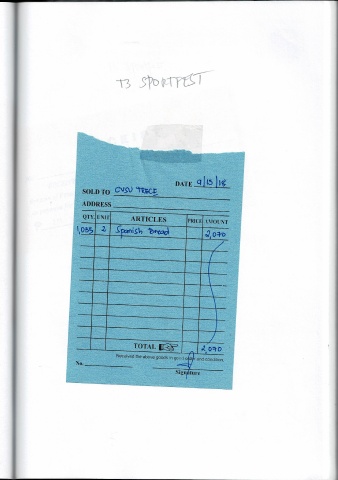 T3 SPORTFEST
DATE 9/13/18
SOLD TO CVSU TRECE
ADDRESS
QTY. UNIT ARTICLES PRICE AMOUNT
1,035 2 Spanish Bread 2,070
TOTAL 2,070
Received the above goods in good order and condition.
No.
Signature